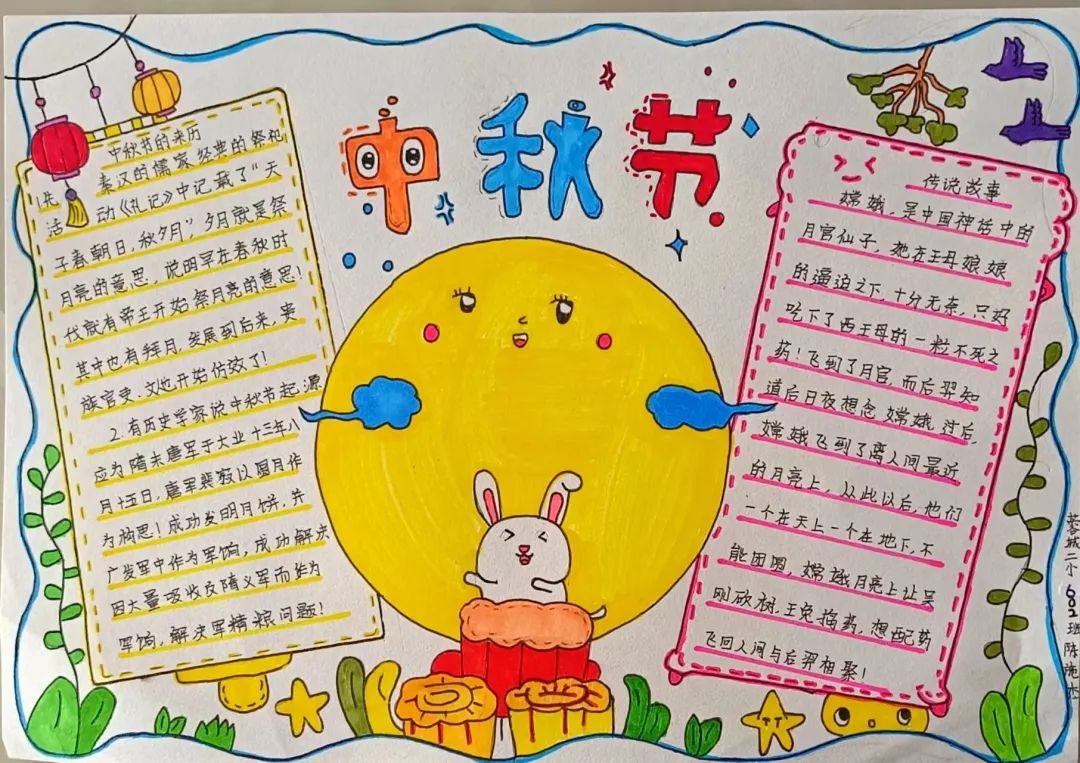 中秋节
中秋节的来历
秦汉的儒家经典的祭祀
1.先
活动《礼记》中记载了“天
子春朝日，秋夕月”，夕月就是祭
月亮的意思，说明早在春秋时
代就有帝王开始祭月亮的意思！
其中也有拜月，发展到后来，贵
族官吏、文也开始仿效了！
2.有历史学家说中秋节起源
应为隋末唐军于大业十三年八
月十五日，唐军裴寂以圆月作
为构思！成功发明月饼，并
广发军中作为军饷，成功解决
因大量吸收反隋义军而为
军饷，解决军粮问题！
传说故事
嫦娥，是中国神话中的
月宫仙子，她在王母娘娘
的逼迫之下，十分无奈，只好
吃下了西王母的一粒不死之
药！飞到了月宫，而后羿知
道后日夜想念嫦娥，过后，
嫦娥飞到了离人间最近
的月亮上，从此以后，他们
一个在天上一个在地下，不
能团圆，嫦娥月亮上让吴
刚砍树，玉兔捣药，想配药
飞回人间与后羿相聚！
蓉城二小602班陈施杰